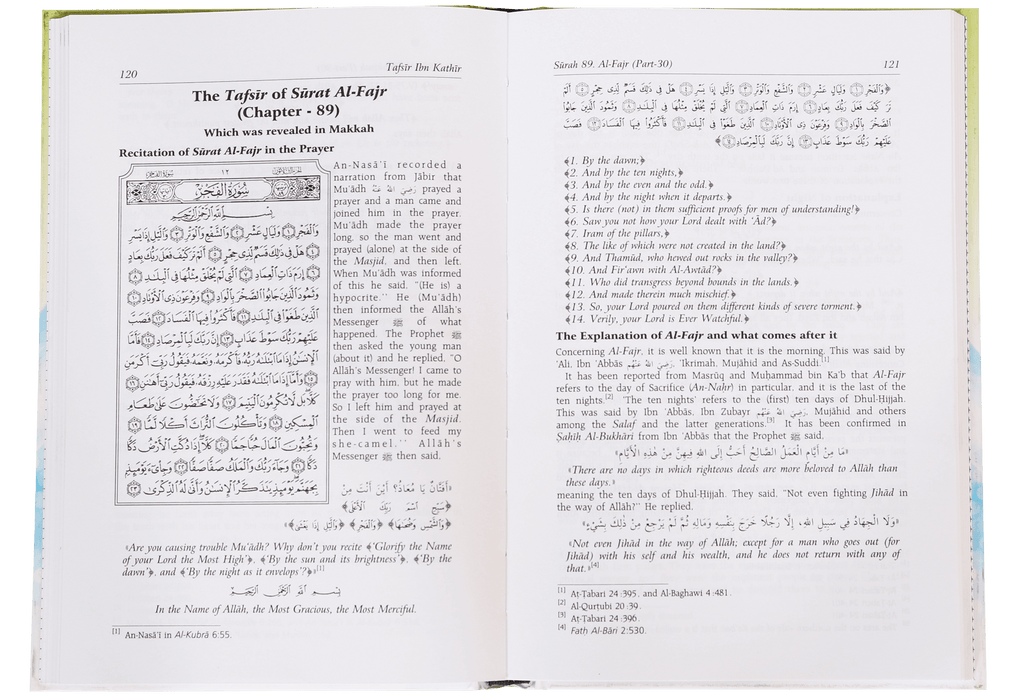 120
Tafsīr Ibn Kathīr
The Tafsīr of Sūrat Al-Fajr
(Chapter - 89)
Which was revealed in Makkah
Recitation of Sūrat Al-Fajr in the Prayer
سُورَةُ الْفَجْرِ
بِسْمِ اللَّهِ الرَّحْمَٰنِ الرَّحِيمِ
وَالْفَجْرِ ۝١ وَلَيَالٍ عَشْرٍ ۝٢ وَالشَّفْعِ وَالْوَتْرِ ۝٣ وَاللَّيْلِ إِذَا يَسْرِ
۝٤ هَلْ فِي ذَٰلِكَ قَسَمٌ لِّذِي حِجْرٍ ۝٥ أَلَمْ تَرَ كَيْفَ فَعَلَ رَبُّكَ بِعَادٍ
۝٦ إِرَمَ ذَاتِ الْعِمَادِ ۝٧ الَّتِي لَمْ يُخْلَقْ مِثْلُهَا فِي الْبِلَادِ ۝٨
وَثَمُودَ الَّذِينَ جَابُوا الصَّخْرَ بِالْوَادِ ۝٩ وَفِرْعَوْنَ ذِي الْأَوْتَادِ ۝١٠
الَّذِينَ طَغَوْا فِي الْبِلَادِ ۝١١ فَأَكْثَرُوا فِيهَا الْفَسَادَ ۝١٢ فَصَبَّ
عَلَيْهِمْ رَبُّكَ سَوْطَ عَذَابٍ ۝١٣ إِنَّ رَبَّكَ لَبِالْمِرْصَادِ ۝١٤ فَأَمَّا
الْإِنسَانُ إِذَا مَا ابْتَلَاهُ رَبُّهُ فَأَكْرَمَهُ وَنَعَّمَهُ فَيَقُولُ رَبِّي أَكْرَمَنِ
۝١٥ وَأَمَّا إِذَا مَا ابْتَلَاهُ فَقَدَرَ عَلَيْهِ رِزْقَهُ فَيَقُولُ رَبِّي أَهَانَنِ ۝١٦
كَلَّا بَل لَّا تُكْرِمُونَ الْيَتِيمَ ۝١٧ وَلَا تَحَاضُّونَ عَلَىٰ طَعَامِ
الْمِسْكِينِ ۝١٨ وَتَأْكُلُونَ التُّرَاثَ أَكْلًا لَّمًّا ۝١٩
وَتُحِبُّونَ الْمَالَ حُبًّا جَمًّا ۝٢٠ كَلَّا إِذَا دُكَّتِ الْأَرْضُ دَكًّا
دَكًّا ۝٢١ وَجَاءَ رَبُّكَ وَالْمَلَكُ صَفًّا صَفًّا ۝٢٢ وَجِيءَ يَوْمَئِذٍ
بِجَهَنَّمَ يَوْمَئِذٍ يَتَذَكَّرُ الْإِنسَانُ وَأَنَّىٰ لَهُ الذِّكْرَىٰ ۝٢٣
An-Nasā'ī recorded a
narration from Jābir that
Mu'ādh رضي الله عنه prayed a
prayer and a man came and
joined him in the prayer.
Mu'ādh made the prayer
long, so the man went and
prayed (alone) at the side of
the Masjid, and then left.
When Mu'ādh was informed
of this he said, "(He is) a
hypocrite." He (Mu'ādh)
then informed the Allāh's
Messenger ﷺ of what
happened. The Prophet ﷺ
then asked the young man
(about it) and he replied, "O
Allāh's Messenger! I came to
pray with him, but he made
the prayer too long for me.
So I left him and prayed at
the side of the Masjid.
Then I went to feed my
she-camel." Allāh's
Messenger ﷺ then said,
«أَفَتَّانٌ يَا مُعَاذُ؟ أَيْنَ أَنْتَ مِنْ
﴿سَبِّحِ اسْمَ رَبِّكَ الْأَعْلَى﴾
﴿وَالشَّمْسِ وَضُحَاهَا﴾ ﴿وَالْفَجْرِ﴾ ﴿وَاللَّيْلِ إِذَا يَغْشَىٰ﴾»
«Are you causing trouble Mu'ādh? Why don't you recite ﴿'Glorify the Name
of your Lord the Most High'﴾, ﴿'By the sun and its brightness'﴾, ﴿'By the
dawn'﴾, and ﴿'By the night as it envelops'?﴾»[1]
بِسْمِ اللَّهِ الرَّحْمَٰنِ الرَّحِيمِ
In the Name of Allāh, the Most Gracious, the Most Merciful.
[1] An-Nasā'ī in Al-Kubrā 6:55.
Sūrah 89. Al-Fajr (Part-30)
121
﴿وَالْفَجْرِ ۝١ وَلَيَالٍ عَشْرٍ ۝٢ وَالشَّفْعِ وَالْوَتْرِ ۝٣ وَاللَّيْلِ إِذَا يَسْرِ ۝٤ هَلْ فِي ذَٰلِكَ قَسَمٌ لِّذِي حِجْرٍ ۝٥ أَلَمْ
تَرَ كَيْفَ فَعَلَ رَبُّكَ بِعَادٍ ۝٦ إِرَمَ ذَاتِ الْعِمَادِ ۝٧ الَّتِي لَمْ يُخْلَقْ مِثْلُهَا فِي الْبِلَادِ ۝٨ وَثَمُودَ الَّذِينَ جَابُوا
الصَّخْرَ بِالْوَادِ ۝٩ وَفِرْعَوْنَ ذِي الْأَوْتَادِ ۝١٠ الَّذِينَ طَغَوْا فِي الْبِلَادِ ۝١١ فَأَكْثَرُوا فِيهَا الْفَسَادَ ۝١٢ فَصَبَّ
عَلَيْهِمْ رَبُّكَ سَوْطَ عَذَابٍ ۝١٣ إِنَّ رَبَّكَ لَبِالْمِرْصَادِ ۝١٤﴾
﴿1. By the dawn;﴾
﴿2. And by the ten nights,﴾
﴿3. And by the even and the odd.﴾
﴿4. And by the night when it departs.﴾
﴿5. Is there (not) in them sufficient proofs for men of understanding!﴾
﴿6. Saw you not how your Lord dealt with 'Ād?﴾
﴿7. Iram of the pillars,﴾
﴿8. The like of which were not created in the land?﴾
﴿9. And Thamūd, who hewed out rocks in the valley?﴾
﴿10. And Fir'awn with Al-Awtād?﴾
﴿11. Who did transgress beyond bounds in the lands.﴾
﴿12. And made therein much mischief.﴾
﴿13. So, your Lord poured on them different kinds of severe torment.﴾
﴿14. Verily, your Lord is Ever Watchful.﴾
The Explanation of Al-Fajr and what comes after it
Concerning Al-Fajr, it is well known that it is the morning. This was said by
'Ali, Ibn 'Abbās رضي الله عنهم, 'Ikrimah, Mujāhid and As-Suddi.[1]
It has been reported from Masrūq and Muḥammad bin Ka'b that Al-Fajr
refers to the day of Sacrifice (An-Nahr) in particular, and it is the last of the
ten nights.[2] 'The ten nights' refers to the (first) ten days of Dhul-Hijjah.
This was said by Ibn 'Abbās, Ibn Zubayr رضي الله عنهم, Mujāhid and others
among the Salaf and the latter generations.[3] It has been confirmed in
Ṣaḥīḥ Al-Bukhāri from Ibn 'Abbās that the Prophet ﷺ said,
«مَا مِنْ أَيَّامٍ الْعَمَلُ الصَّالِحُ أَحَبُّ إِلَى اللهِ فِيهِنَّ مِنْ هٰذِهِ الْأَيَّامِ»
«There are no days in which righteous deeds are more beloved to Allāh than
these days,»
meaning the ten days of Dhul-Hijjah. They said, "Not even fighting Jihād in
the way of Allāh?" He replied,
«وَلَا الْجِهَادُ فِي سَبِيلِ اللهِ، إِلَّا رَجُلًا خَرَجَ بِنَفْسِهِ وَمَالِهِ ثُمَّ لَمْ يَرْجِعْ مِنْ ذٰلِكَ بِشَيْءٍ»
«Not even Jihād in the way of Allāh; except for a man who goes out (for
Jihād) with his self and his wealth, and he does not return with any of
that.»[4]
[1] At-Tabari 24:395, and Al-Baghawi 4:481.
[2] Al-Qurtubi 20:39.
[3] At-Tabari 24:396.
[4] Fath Al-Bāri 2:530.